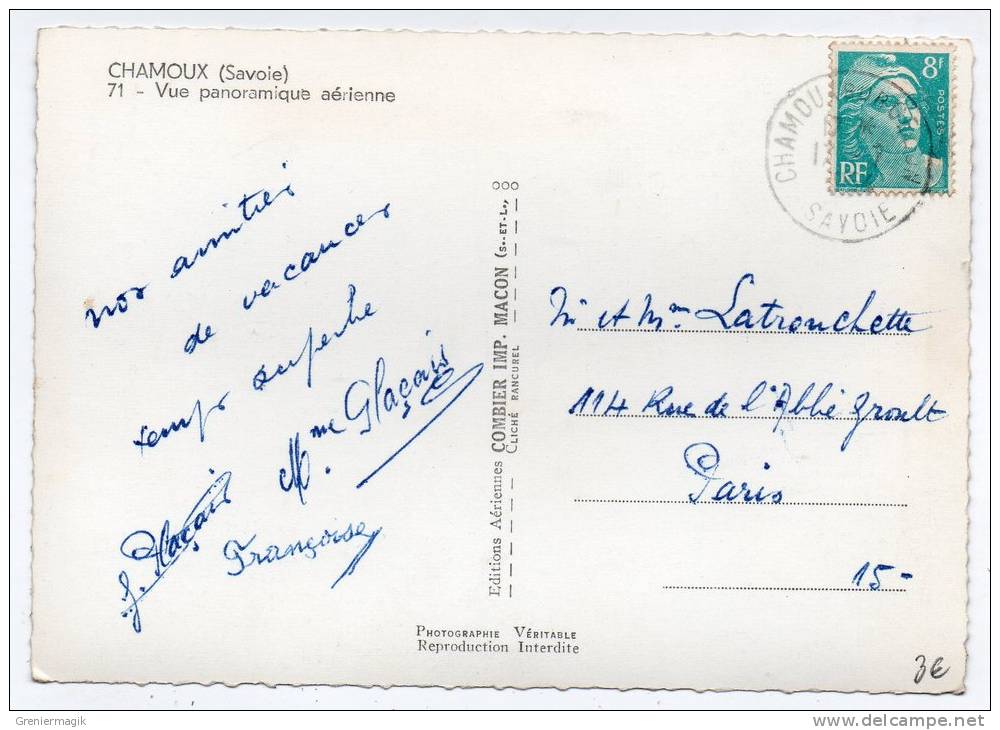 CHAMOUX (Savoie)
71 - Vue panoramique aérienne
8f
POSTES
RF
CHAMOU
SAVOIE
nos amitiés
de vacances
temps superbe
Mme Glaçais
J. Glaçais
Françoise
Editions Aériennes COMBIER IMP. MACON (S.-ET-L.)
CLICHÉ RANCUREL
M et Mme Latronchette
114 Rue de l'Abbé Groult
Paris
15-
PHOTOGRAPHIE VÉRITABLE
Reproduction Interdite
3€
Greniermagik
www.delcampe.net